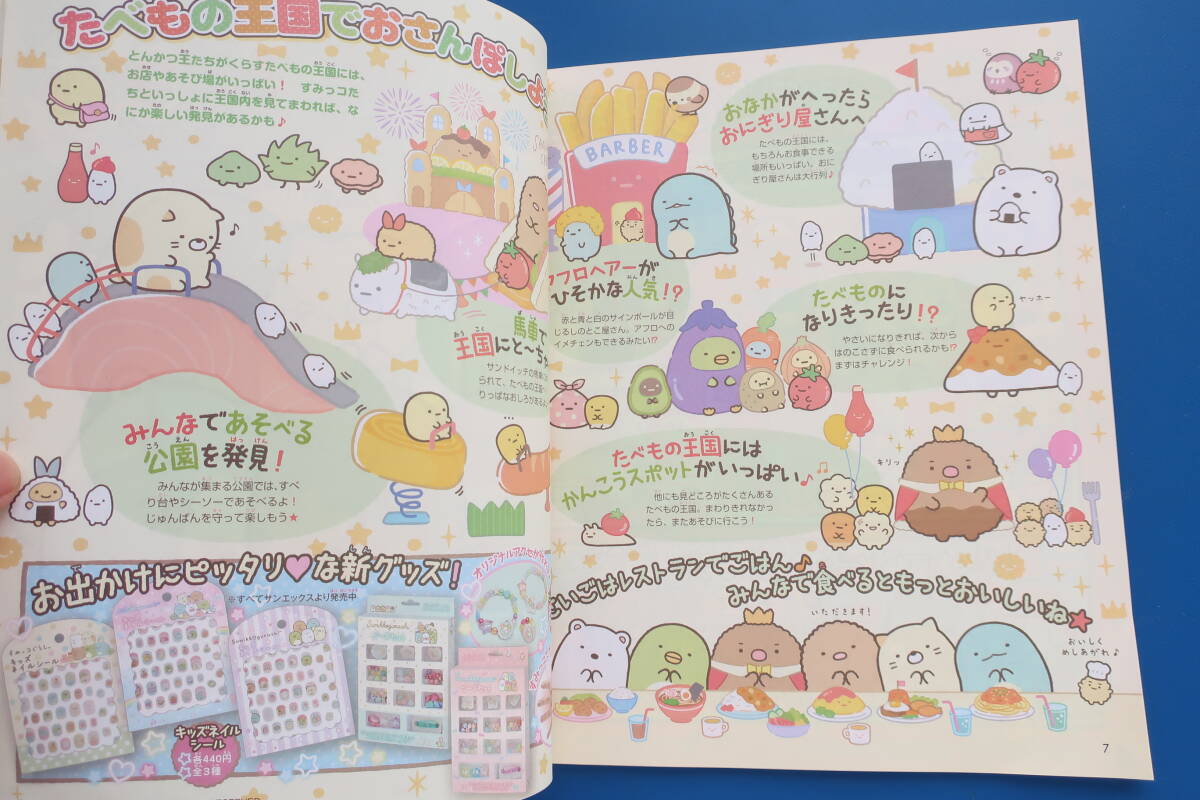 たべもの王国でおさんぽしよ
とんかつ王たちがくらすたべもの王国には、
お店やあそび場がいっぱい！　すみっコた
ちといっしょに王国内を見てまわれば、な
にか楽しい発見があるかも♪
馬車で
王国にと〜ちゃ
サンドイッチの
られて、たべもの王国へ
りっぱなおしろがあるよ
みんなであそべる
公園を発見！
みんなが集まる公園では、すべ
り台やシーソーであそべるよ！
じゅんばんを守って楽しもう★
お出かけにピッタリ♥な新グッズ！
※すべてサンエックスより発売中
オリジナルアクセが
すみっコぐらし
キッズ
ネイルシール
Sumikkogurashi
キッズネイル
シール
各440円
全3種
BARBER
おなかがへったら
おにぎり屋さんへ
たべもの王国には、
もちろんお食事できる
場所もいっぱい。おに
ぎり屋さんは大行列♪
アフロヘアーが
ひそかな人気！？
赤と青と白のサインポールが目
じるしのとこ屋さん。アフロへの
イメチェンもできるみたい！？
たべものに
なりきったり！？
やさいになりきれば、次から
はのこさずに食べられるかも！？
まずはチャレンジ！
ヤッホー
たべもの王国には
かんこうスポットがいっぱい♪
他にも見どころがたくさんある
たべもの王国。まわりきれなかっ
たら、またあそびに行こう！
キリッ
さいごはレストランでごはん♪
みんなで食べるともっとおいしいね★
いただきます！
おいしく
めしあがれ♪
7